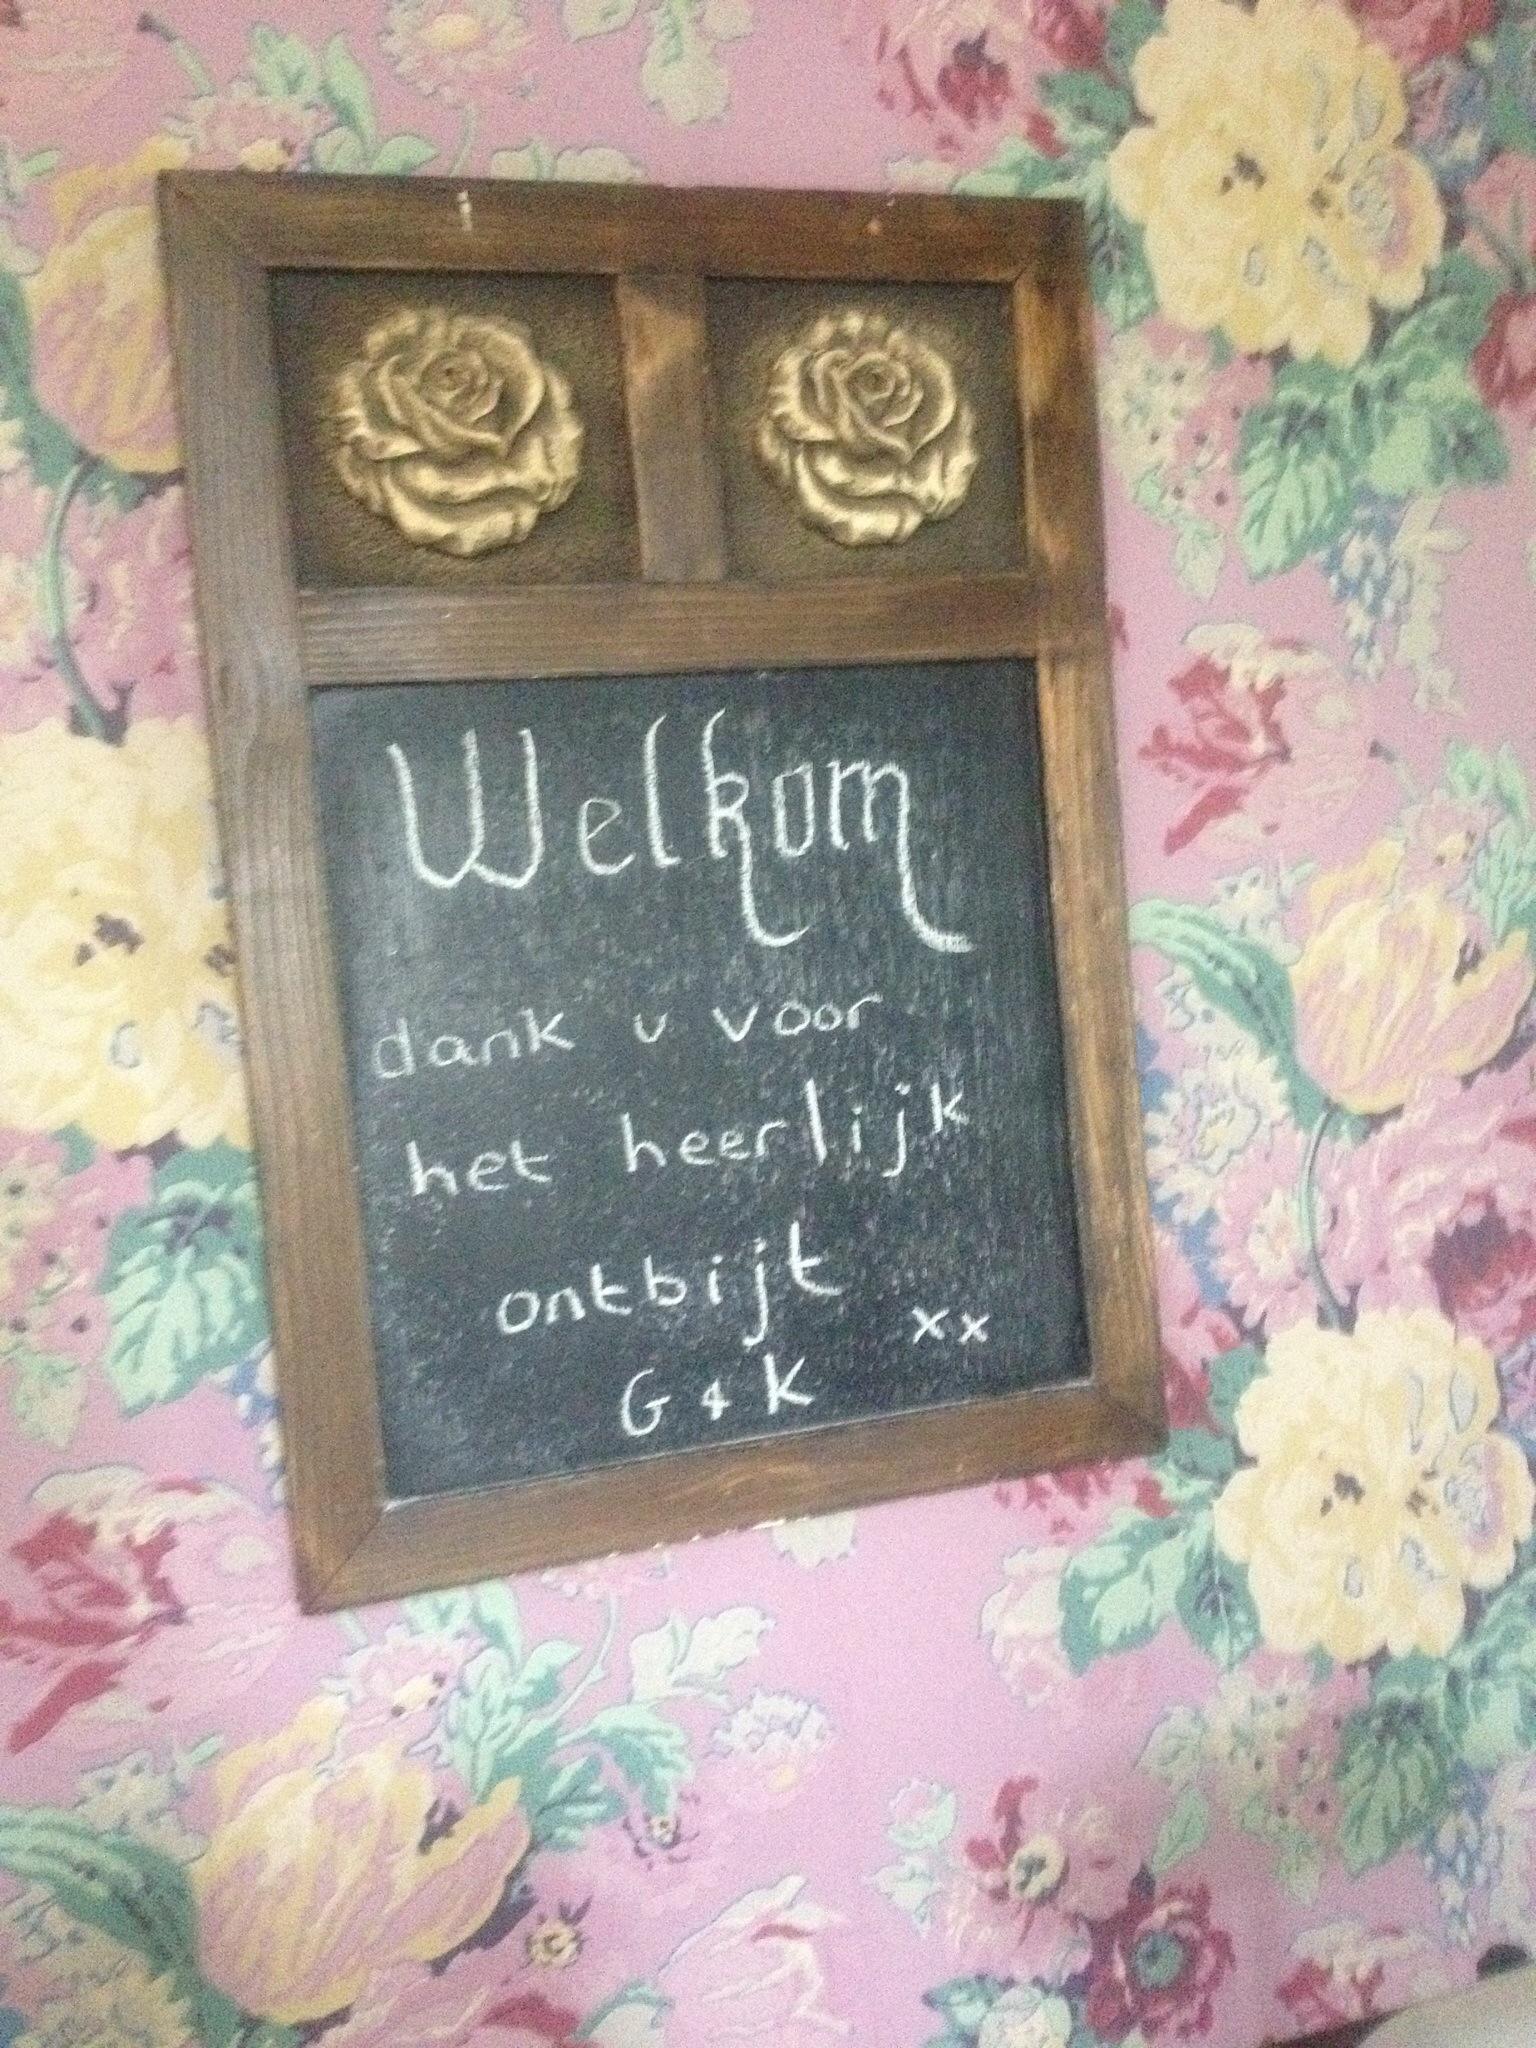 Welkom
dank u voor
het heerlijk
ontbijt
xx
G & K